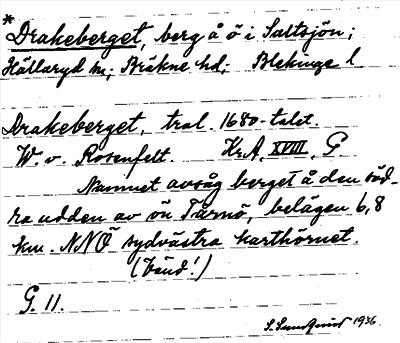 * Drakeberget, berg å ö i Saltsjön;
Hällaryd sn; Bräkne hd; Blekinge l.
Drakeberget, trol. 1680-talet.
W. v. Rosenfelt. Kr.A. XVIII, G.
Namnet avsåg berget å den söd-
ra udden av ön Tärnö, belägen 6,8
km. NNÖ sydvästra karthörnet.
G. 11.
S. Sundqvist 1936.